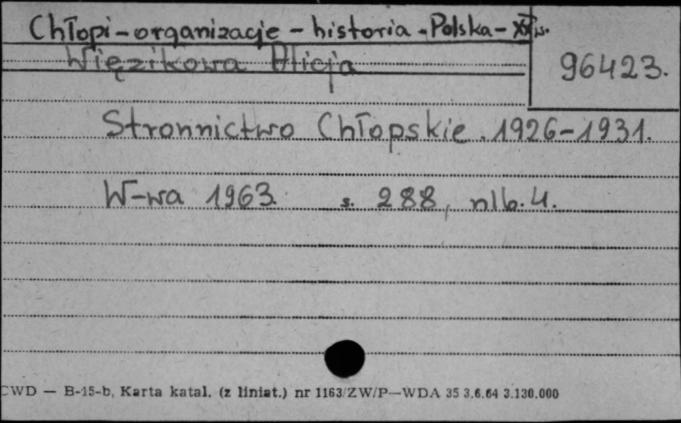 Chłopi-organizacje-historia-Polska-XX w.
Więzikowa Alicja
96423.
Stronnictwo Chłopskie. 1926-1931.
W-wa 1963 s. 288, nlb. 4.
CWD — B-15-b, Karta katal. (z liniat.) nr 1163/ZW/P—WDA 35 3.6.64 3.130.000